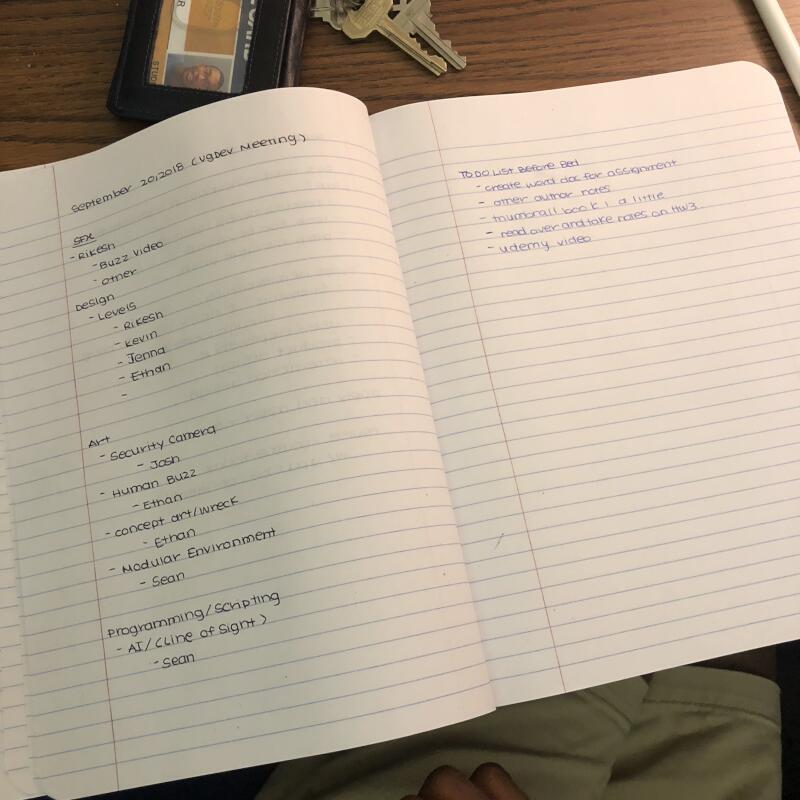 September 20, 2018 (VGDev Meeting)
SFX
- Rikesh
- Buzz video
- other
Design
- Levels
- Rikesh
- Kevin
- Jenna
- Ethan
-
Art
- Security Camera
- Josh
- Human Buzz
- Ethan
- concept art/wreck
- Ethan
- Modular Environment
- Sean
Programming/Scripting
- AI/(Line of Sight)
- Sean
TO DO List Before Bed
- create word doc for assignment
- other author notes
- thumbnail book 1 a little
- read over and take notes on HW3
- udemy video
STUD